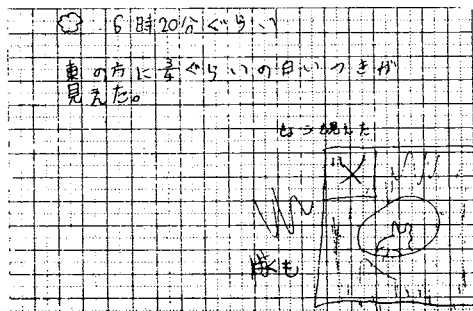 6時20分ぐらい
東の方に3/4ぐらいの白いつきが
見えた。
もう見えた
くも